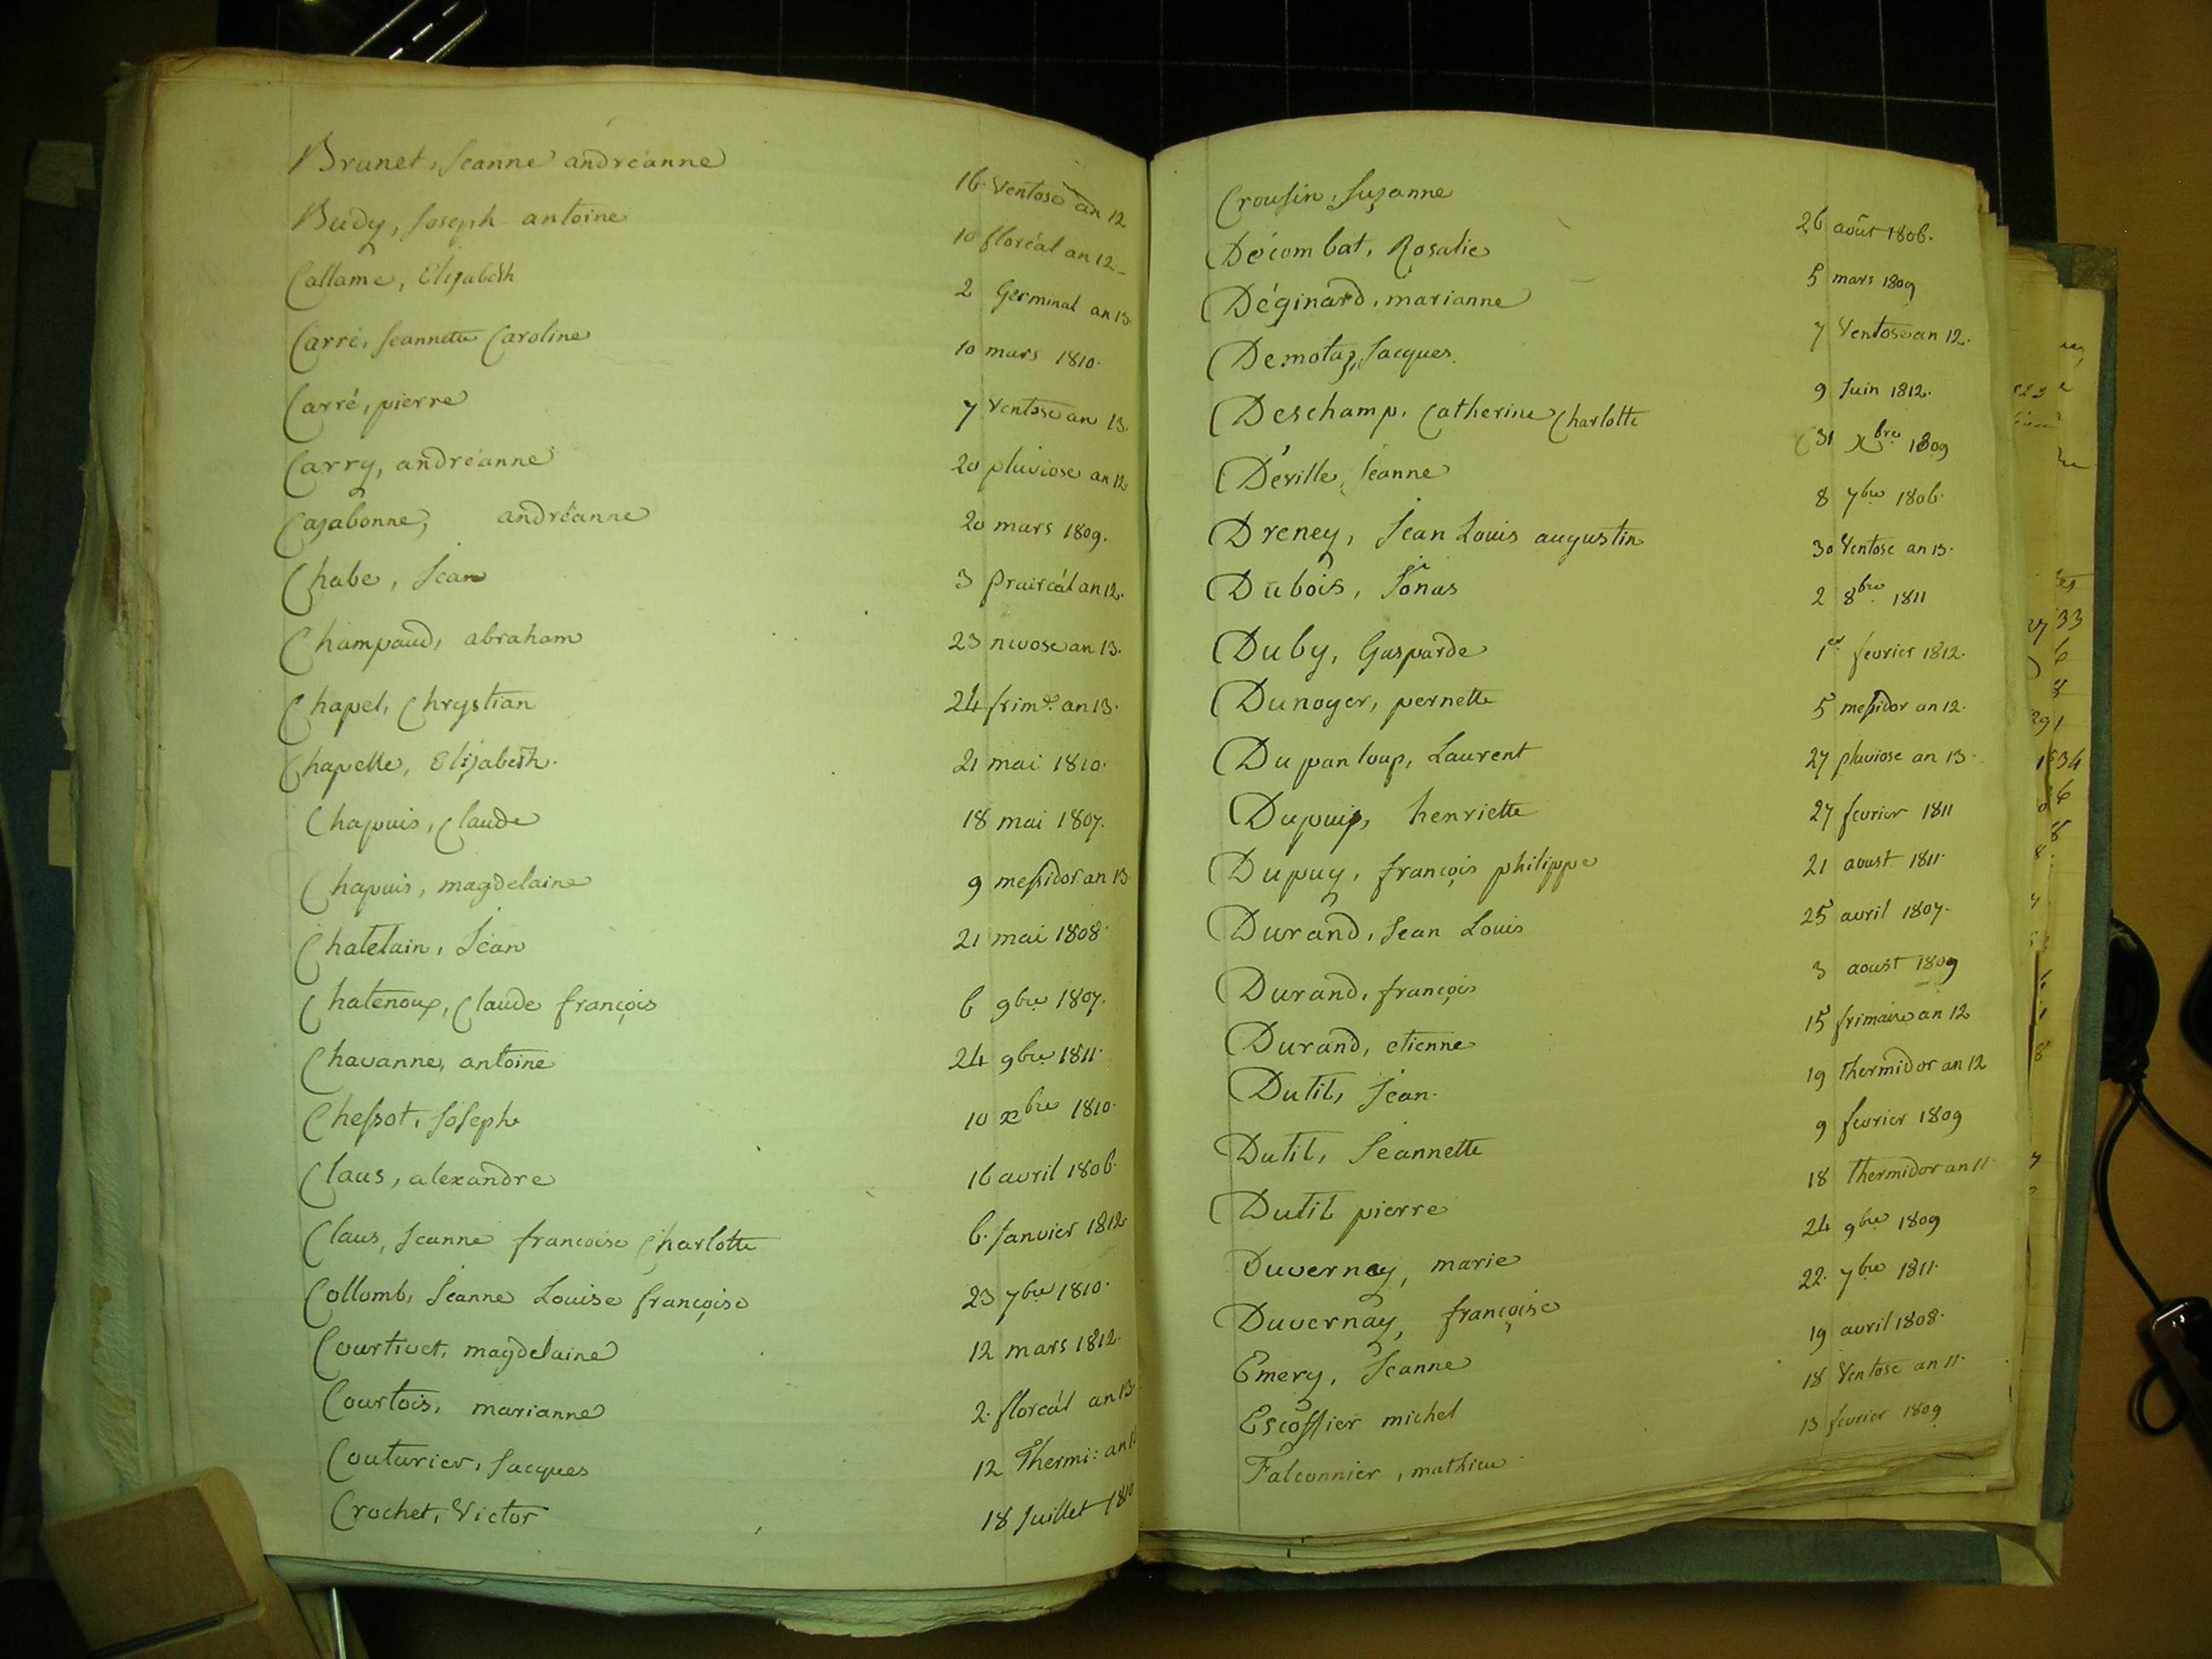 Brunet, Jeanne andréanne 16 Ventose an 12
Budy, Joseph antoine 10 floréal an 12
Callame, Elizabeth 2 Germinal an 13.
Carré, Jeannette Caroline 10 mars 1810.
Carré, pierre 7 Ventose an 13.
Carry, andréanne 20 pluviose an 12
Cazabonne, andréanne 20 mars 1809.
Chabe, Jean 3 Prairéal an 12.
Champaud, abraham 23 nivose an 13.
Chapel, Chrystian 24 frim.re an 13.
Chapelle, Elizabeth. 21 mai 1810.
Chapuis, Claude 18 mai 1807.
Chapuis, magdelaine 9 messidor an 13
Chatelain, Jean 21 mai 1808.
Chatenoux, Claude françois 6 9bre 1807.
Chavanne, antoine 24 9bre 1811.
Chessot, Joseph 10 xbre 1810.
Claus, alexandre 16 avril 1806.
Claus, Jeanne francoise Charlotte 6. Janvier 1812.
Collomb, Jeanne Louise françoise 23 7bre 1810.
Courtivet, magdelaine 12 mars 1812.
Courtois, marianne 2. floréal an 13
Couturier, Jacques 12 Thermi: an
Crochet, Victor 18 Juillet 1810
Crousin, Suzanne 26 août 1806.
Décombat, Rosalie 5 mars 1809
Déginard, marianne 7 Ventose an 12.
Demotaz, Jacques. 9 Juin 1812.
Deschamp, Catherine Charlotte 31 Xbre 1809
Déville, Jeanne 8 7bre 1806.
Dreney, Jean Louis augustin 30 Ventose an 13.
Dubois, Jonas 2 8bre 1811
Duby, Gasparde 1er fevrier 1812.
Dunoyer, pernette 5 messidor an 12.
Dupanloup, Laurent 27 pluviose an 13.
Dupuis, henriette 27 fevrier 1811
Dupuy, françois philippe 21 aoust 1811.
Durand, Jean Louis 25 avril 1807.
Durand, françois 3 aoust 1809
Durand, etienne 15 frimaire an 12
Dutil, Jean. 19 thermidor an 12
Dutil, Jeannette 9 fevrier 1809
Dutil pierre 18 Thermidor an 11.
Duvernay, marie 24 9bre 1809
Duvernay, françoise 22. 7bre 1811.
Emery, Jeanne 19 avril 1808.
Escoffier michel 18 Ventose an 11.
Falconnier, mathieu 13 fevrier 1809